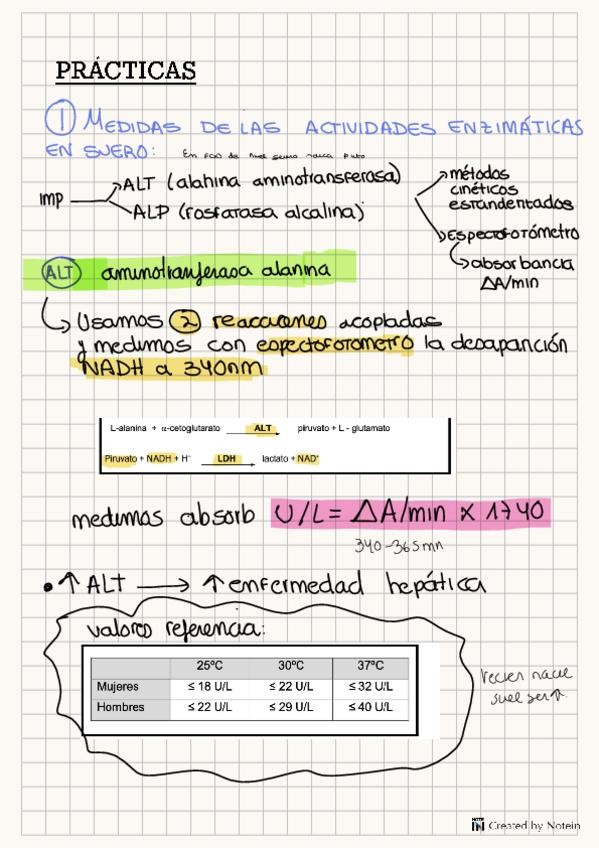 PRÁCTICAS
① MEDIDAS DE LAS ACTIVIDADES ENZIMÁTICAS
EN SUERO:
IMP
ALT (alanina aminotransferasa)
ALP (fosfatasa alcalina)
métodos
cinéticos
estandentados
Espectofotómetro
absorbancia
ΔA/min
ALT aminotranferasa alanina
Usamos ② reacciones acopladas
y medimos con espectofotometro la desaparición
NADH a 340nm
L-alanina + α-cetoglutarato ALT piruvato + L - glutamato
Piruvato + NADH + H⁺ LDH lactato + NAD⁺
medimos absorb U/L = ΔA/min x 1740
340-365mn
• ↑ ALT → ↑ enfermedad hepática
valores referencia:
25ºC 30ºC 37ºC
Mujeres ≤ 18 U/L ≤ 22 U/L ≤ 32 U/L
Hombres ≤ 22 U/L ≤ 29 U/L ≤ 40 U/L
recien nacie
suel ser ↑.
Created by Notein